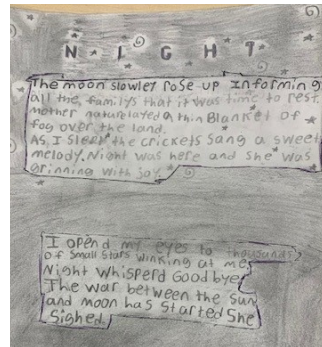 NIGHT
The moon slowley rose up informing
all the familys that it was time to rest.
Mother nature layed a thin Blanket of
fog over the land.
As I sleapt the crickets sang a sweet
melody. Night was here and she was
grinning with Joy.
I opend my eyes to thousands
of small stars winking at me
Night whisperd Goodbye
The war between the sun
and moon has started she
sighed